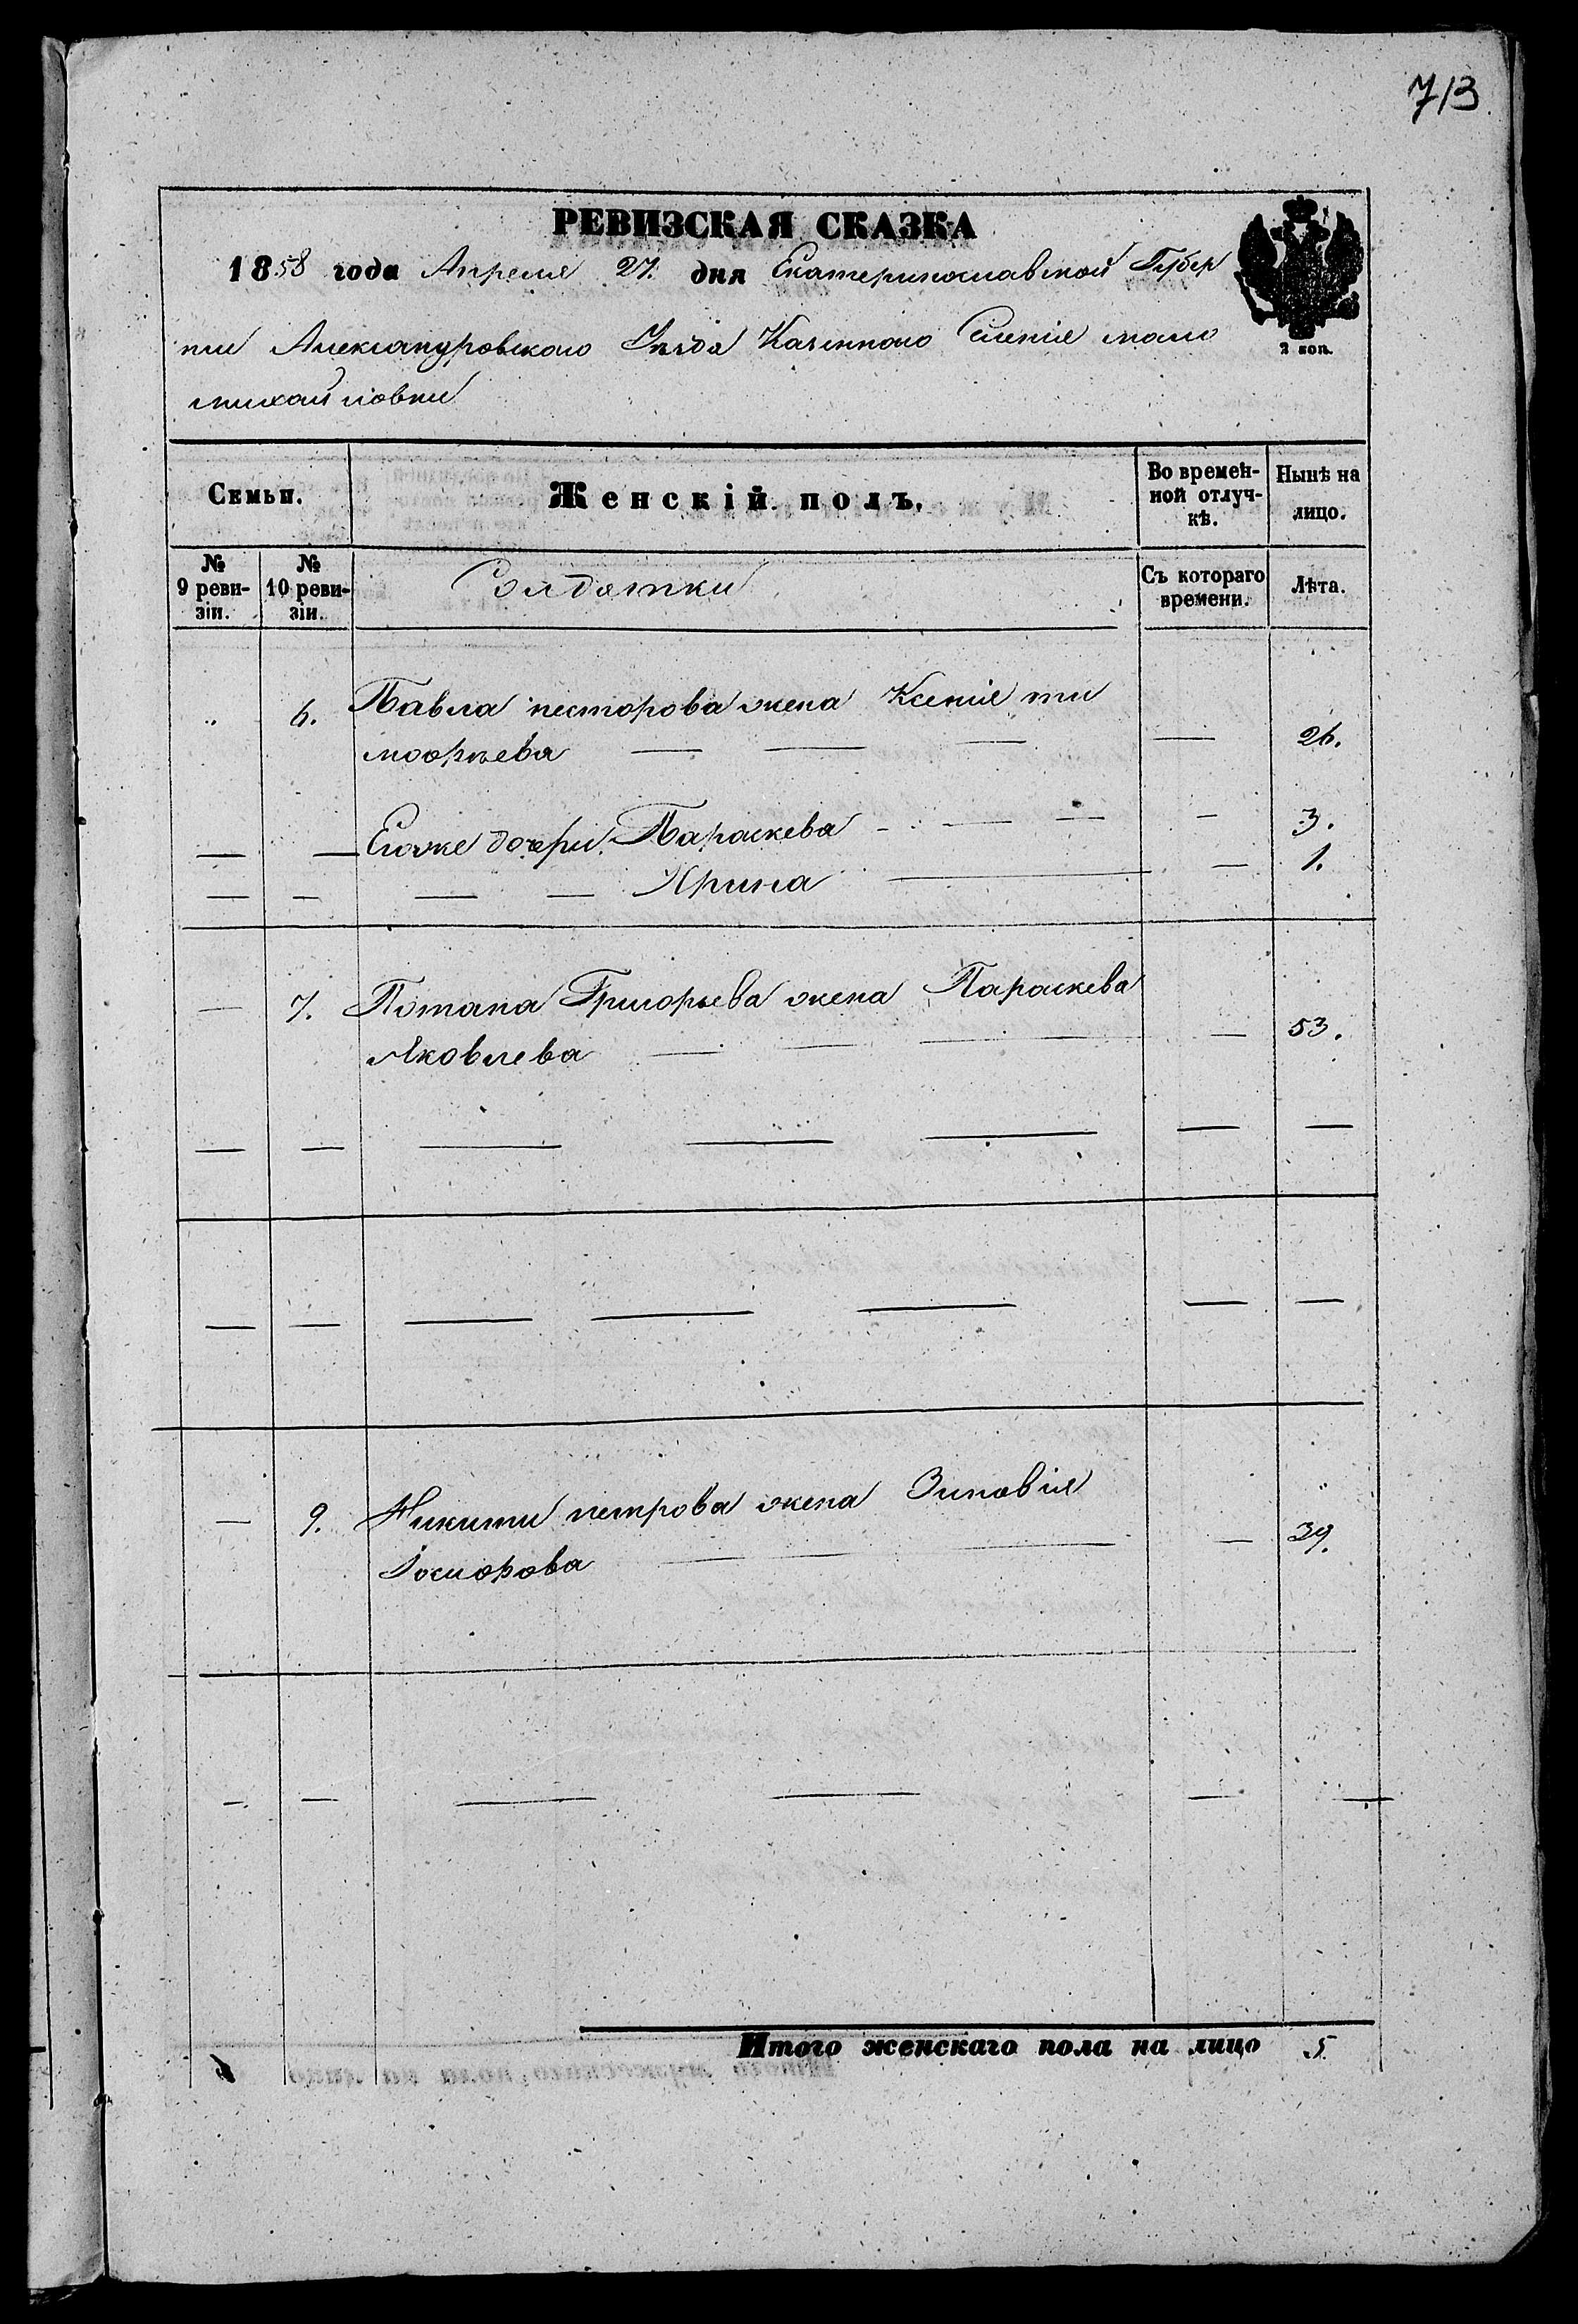 713
РЕВИЗСКАЯ СКАЗКА
1858 года Апреля 27. дня Екатеринославской Губер
нии Александровского Уезда Казенного Селенія мало
михайловки
2 коп.
Семьи. Женскій полъ. Во времен-
ной отлуч-
кѣ. Нынѣ на
лицо.
№
9 реви-
зіи. №
10 реви-
зіи. Солдатки Съ котораго
времени. Лѣта.
„ 6. Павла несторова жена Ксенія ти
мофѣева — — — — 26.
— — Егоже дочери Параскева — — — — 3.
— — — — Ирина — — 1.
— 7. Потапа Григорьева жена Параскева
Яковлева — — — — 53.
— — — — — — —
— — — — — — —
— 9. Никити петрова жена Зиновія
— — — — 39.
— — — — — —
Итого женскаго пола на лицо 5